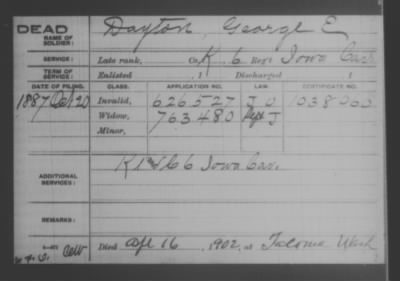 DEAD
NAME OF SOLDIER: Dayton, George E
SERVICE: Late rank, Co. K, 6 Reg't Iowa Cav
TERM OF SERVICE: Enlisted , 1 Discharged , 1
DATE OF FILING. CLASS. APPLICATION NO. LAW. CERTIFICATE NO.
1887 Oct 20 Invalid, 626527 J O 1038060
Widow, 763480 J
Minor,
ADDITIONAL SERVICES: K 6 Iowa Cav.
REMARKS:
Died Apl 16, 1902, at Tacoma Wash